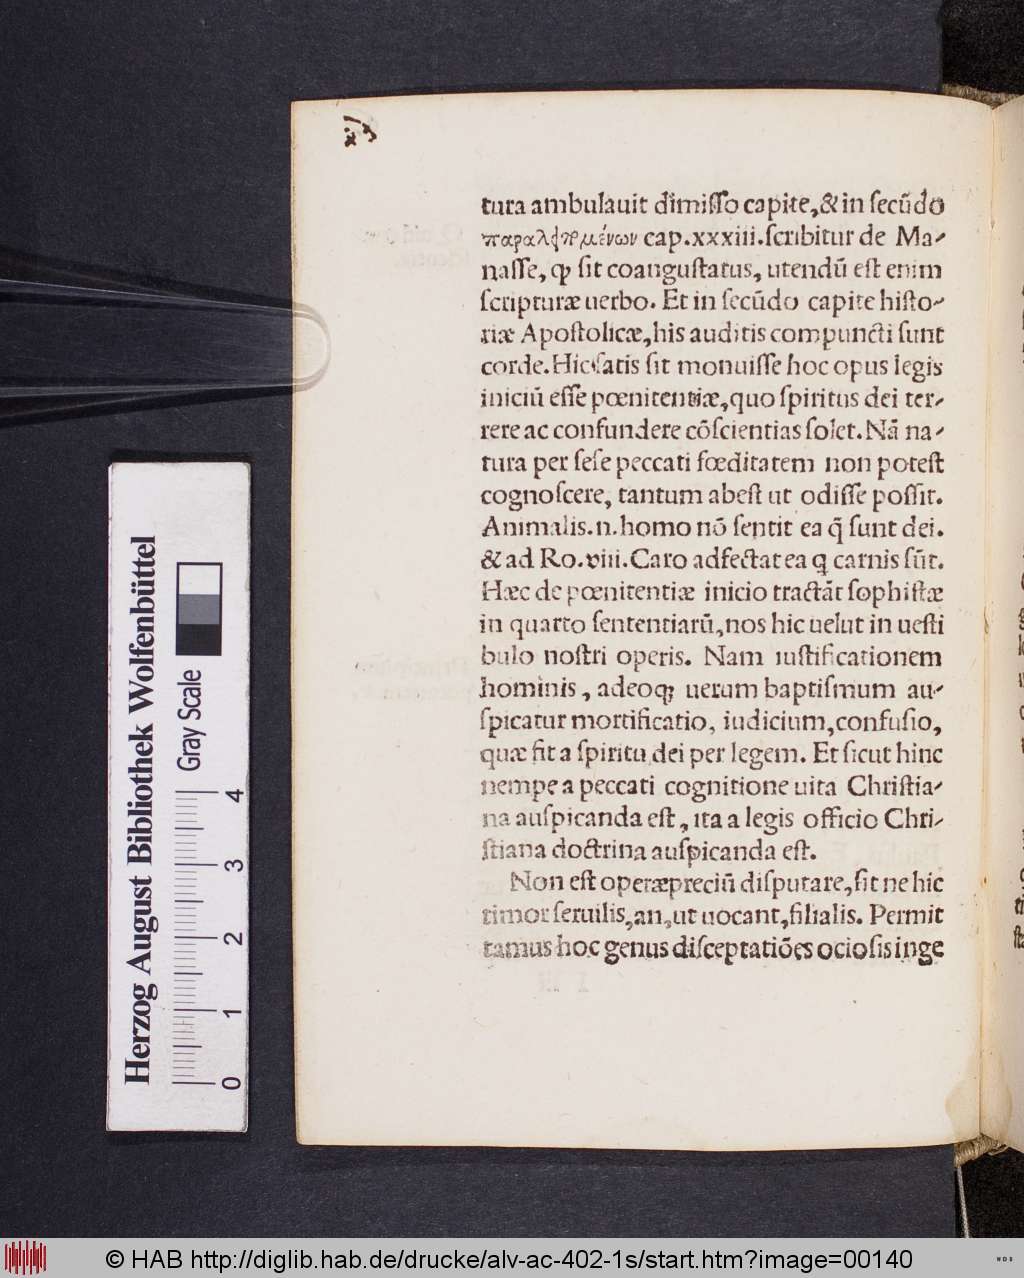 tura ambulauit dimiſſo capite, & in ſecũdo
cap. xxxiii. ſcribitur de Ma-
naſſe, ꝙ ſit coanguſtatus, utendũ eſt enim
ſcripturæ uerbo. Et in ſecũdo capite hiſto-
riæ Apoſtolicæ, his auditis compuncti ſunt
corde. Hic ſatis ſit monuiſſe hoc opus legis
iniciũ eſſe pœnitentiæ, quo ſpiritus dei ter-
rere ac confundere cõſcientias ſolet. Nã na-
tura per ſeſe peccati fœditatem non poteſt
cognoſcere, tantum abeſt ut odiſſe poſſit.
Animalis .n. homo nõ ſentit ea q̃ ſunt dei.
& ad Ro. viii. Caro adfectat ea q carnis ſũt.
Hæc de pœnitentiæ inicio tractãt ſophiſtæ
in quarto ſententiarũ, nos hic uelut in ueſti
bulo noſtri operis. Nam iuſtificationem
hominis, adeoq; uerum baptiſmum au-
ſpicatur mortificatio, iudicium, confuſio,
quæ fit a ſpiritu dei per legem. Et ſicut hinc
nempe a peccati cognitione uita Chriſtia-
na auſpicanda eſt, ita a legis officio Chri-
ſtiana doctrina auſpicanda eſt.
Non eſt operæpreciũ diſputare, ſit ne hic
timor ſeruilis, an, ut uocant, filialis. Permit
tamus hoc genus diſceptatiões ocioſis inge
Herzog August Bibliothek Wolfenbüttel
Gray Scale
0 1 2 3 4
© HAB http://diglib.hab.de/drucke/alv-ac-402-1s/start.htm?image=00140